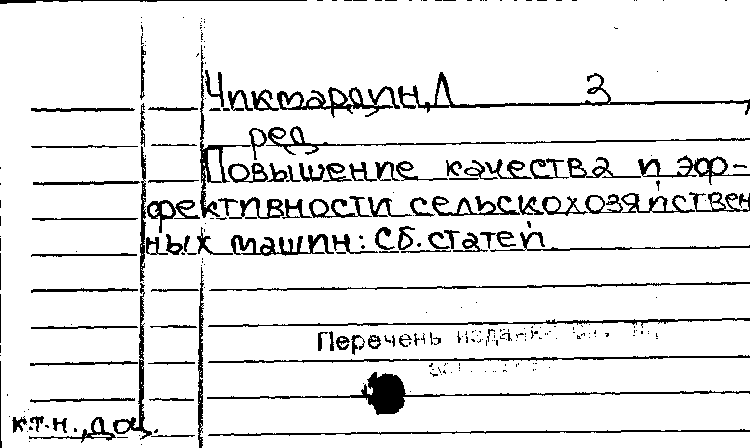 Чиктардин, Л 3
ред.
Повышение качества и эф-
фективности сельскохозяйствен
ных машин: Сб. статей
Перечень издани
к.т.н., доц.